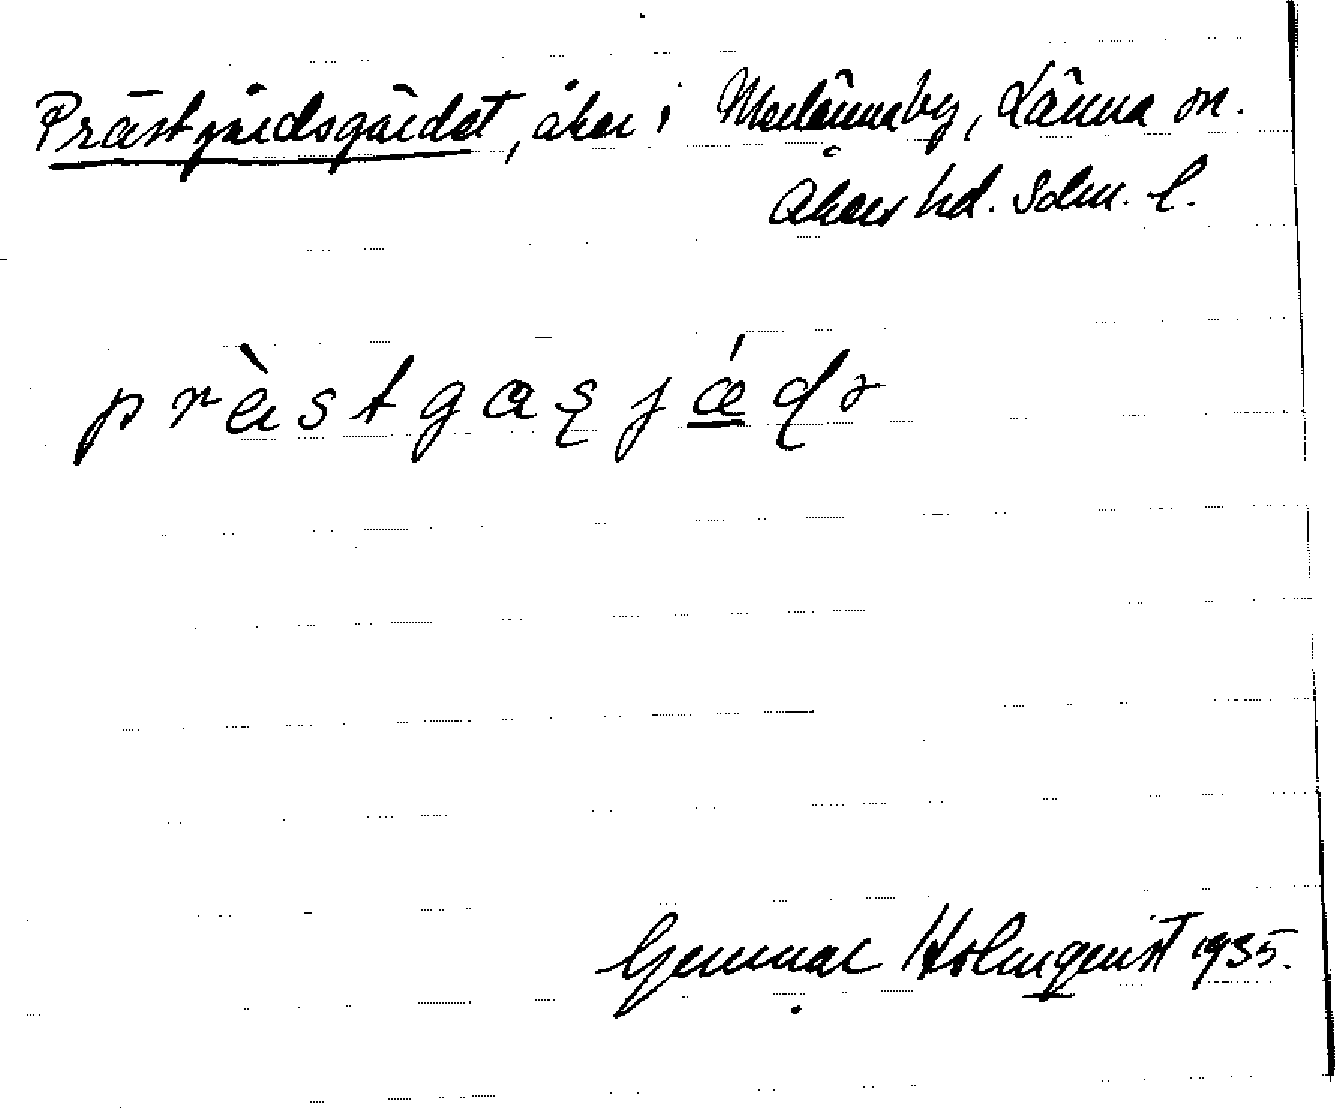 Prästgårdsgärdet, åker i Merlännaby, Länna sn.
Åkers hd. Södm. l.
prästgaʂjædə
Gunnar Holmquist 1935.